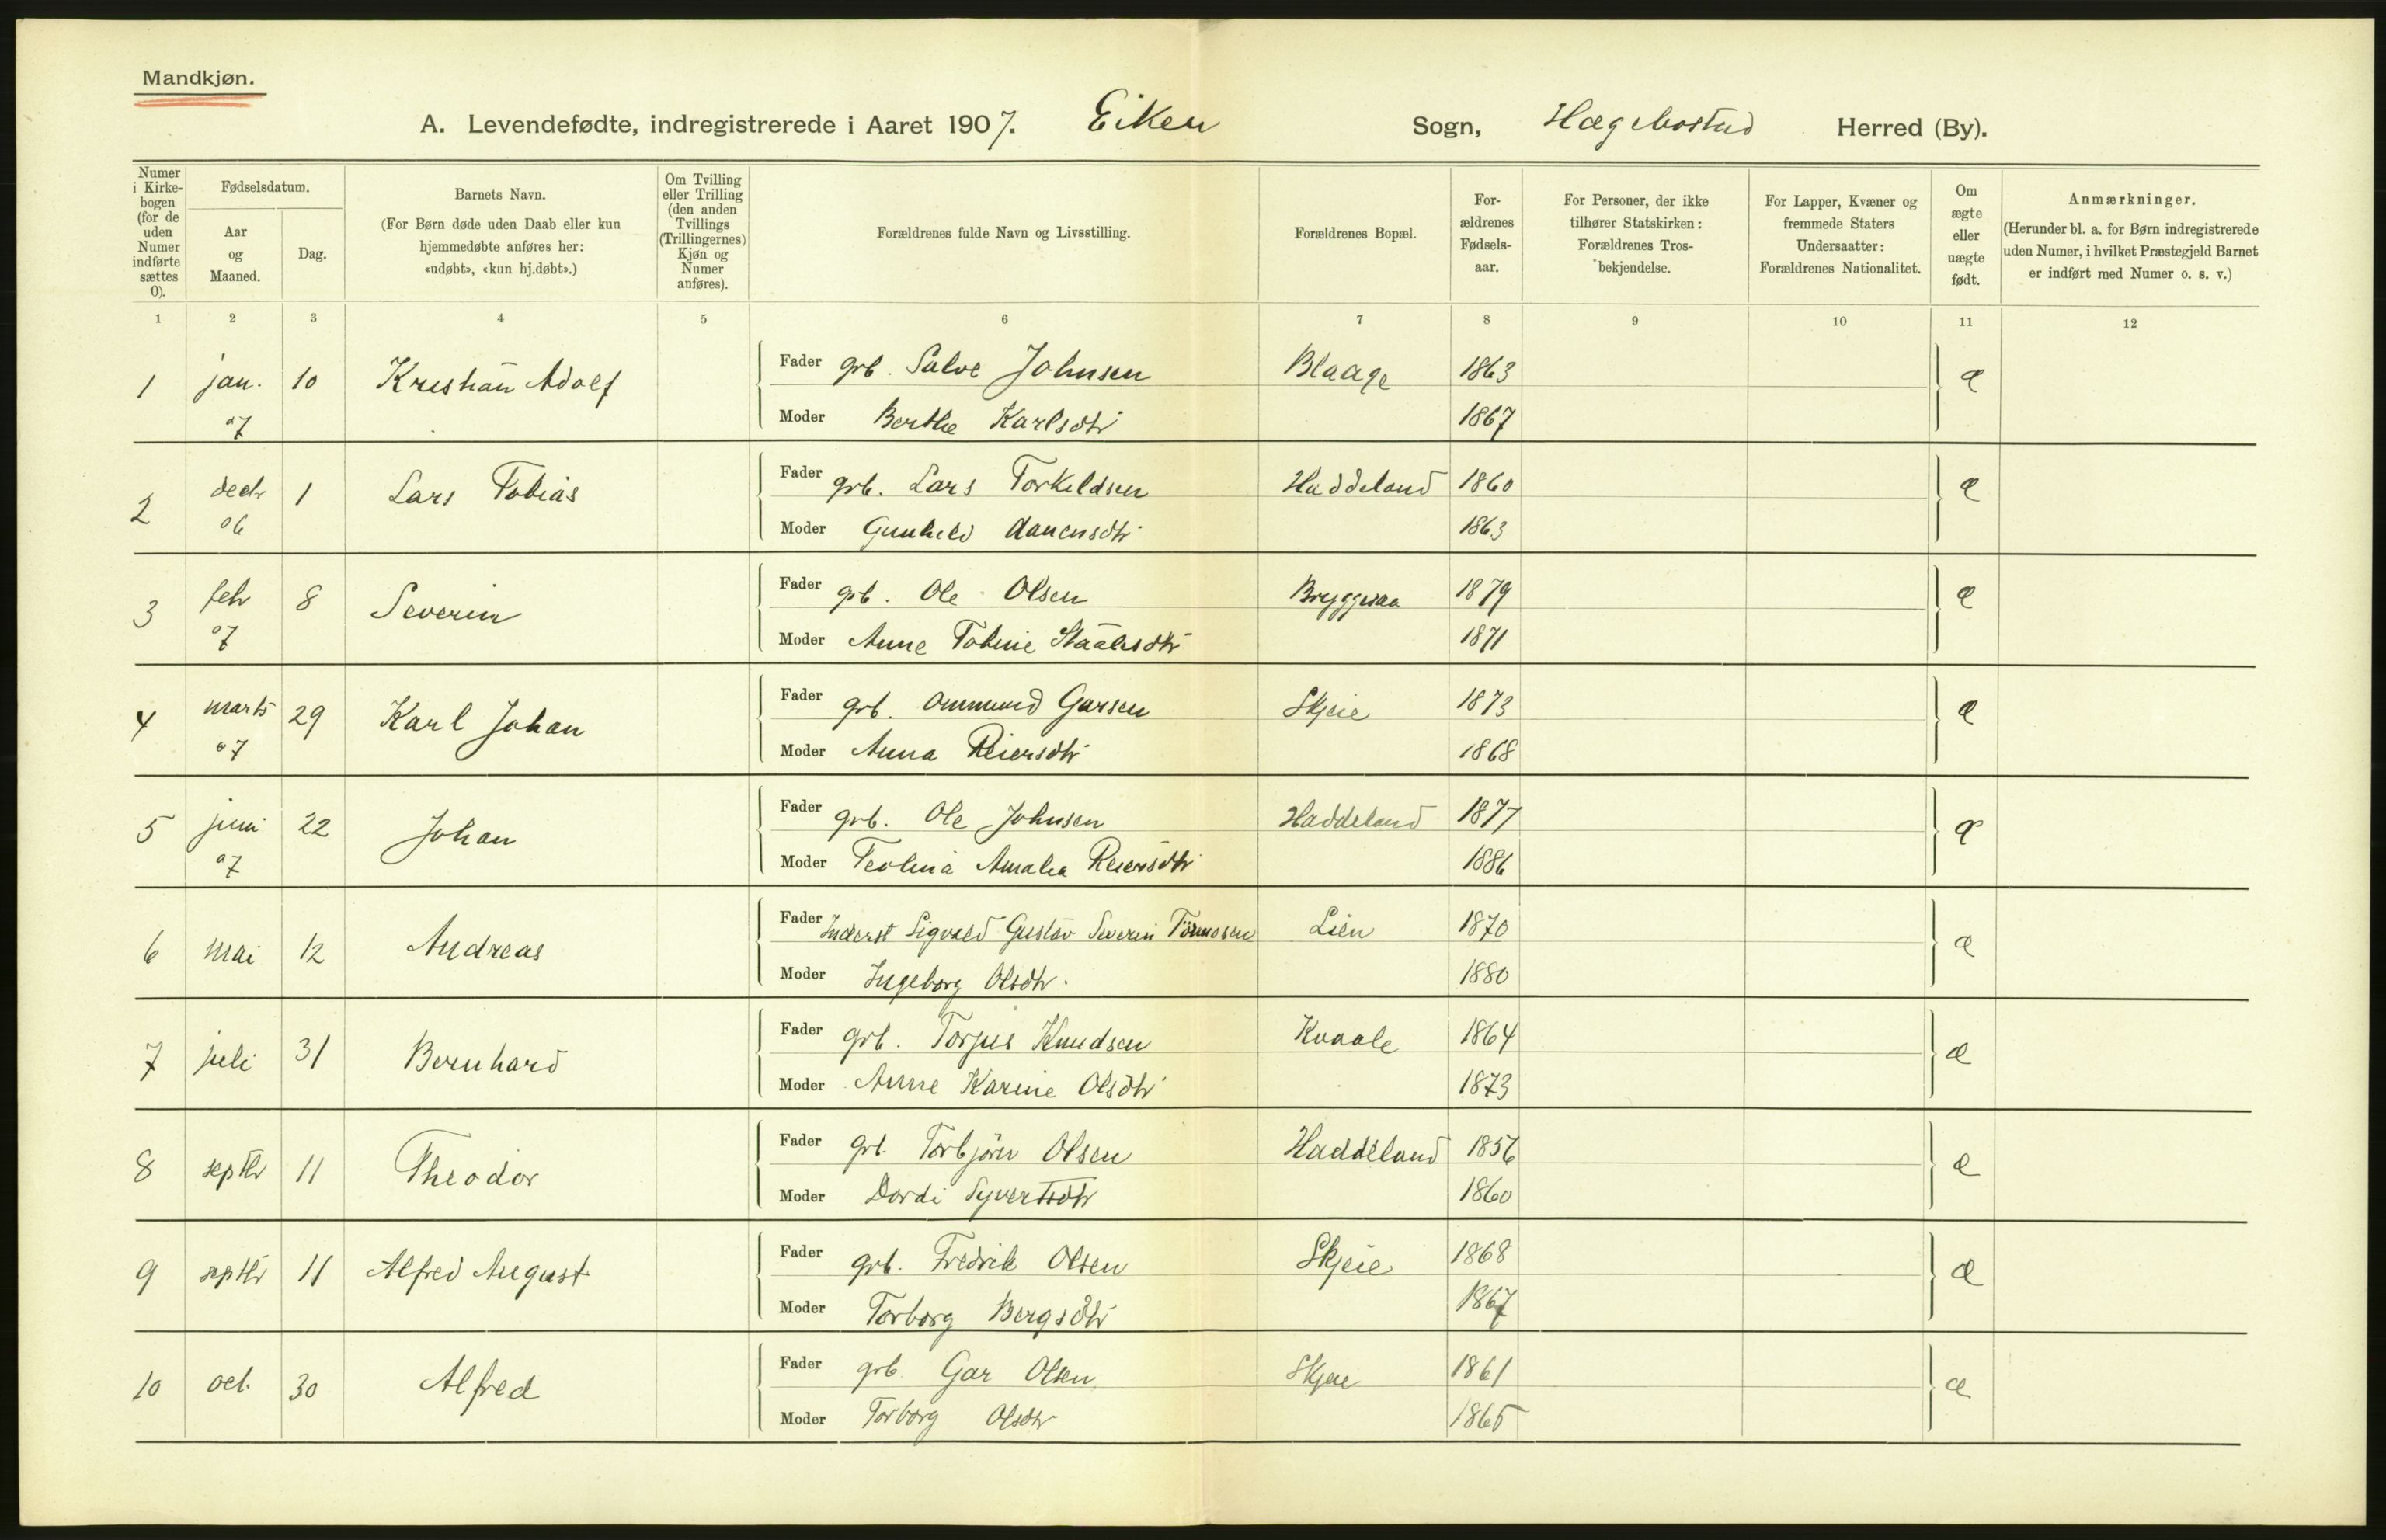 Mandkjøn.
A. Levendefødte, indregistrerede i Aaret 1907. Eiken Sogn, Hægebostad Herred (By).
Numer i Kirkebogen (for de uden Numer indførte sættes 0).
Fødselsdatum.
Aar og Maaned.
Dag.
Barnets Navn.
(For Børn døde uden Daab eller kun hjemmedøbte anføres her: «udøbt», «kun hj.døbt».)
Om Tvilling eller Trilling (den anden Tvillings (Trillingernes) Kjøn og Numer anføres).
Forældrenes fulde Navn og Livsstilling.
Forældrenes Bopæl.
Forældrenes Fødselsaar.
For Personer, der ikke tilhører Statskirken: Forældrenes Trosbekjendelse.
For Lapper, Kvæner og fremmede Staters Undersaatter: Forældrenes Nationalitet.
Om ægte eller uægte født.
Anmærkninger.
(Herunder bl. a. for Børn indregistrerede uden Numer, i hvilket Præstegjeld Barnet er indført med Numer o. s. v.)
1 2 3 4 5 6 7 8 9 10 11 12
1 jan. 07 10 Kristian Adolf Fader grb. Salve Johnsen Blaage 1863 æ
Moder Berthe Karlsdtr 1867
2 decbr 06 1 Lars Tobias Fader grb. Lars Torkildsen Haddeland 1860 æ
Moder Gunhild Aanensdtr 1863
3 febr 07 8 Severin Fader grb. Ole Olsen Bryggesaa 1879 æ
Moder Anne Tobine Staalesdtr 1871
4 marts 07 29 Karl Johan Fader grb. Ommund Garsen Skjeie 1873 æ
Moder Anna Reiersdtr 1868
5 juni 07 22 Johan Fader grb. Ole Johnsen Haddeland 1877 æ
Moder Teolina Amalia Reiersdtr 1886
6 mai 12 Andreas Fader Inderst Sigvald Gustav Severin Tönnesen Lien 1870 æ
Moder Ingeborg Olsdtr. 1880
7 juli 31 Bernhard Fader grb. Torjus Knudsen Kvaale 1864 æ
Moder Anne Karine Olsdtr 1873
8 septbr 11 Theodor Fader grb. Torbjörn Olsen Haddeland 1856 æ
Moder Dordi Syvertsdtr 1860
9 septbr 11 Alfred August Fader grb. Fredrik Olsen Skjeie 1868 æ
Moder Torborg Bergsdtr 1867
10 oct. 30 Alfred Fader grb. Gar Olsen Skjeie 1861 æ
Moder Torborg Olsdtr 1865